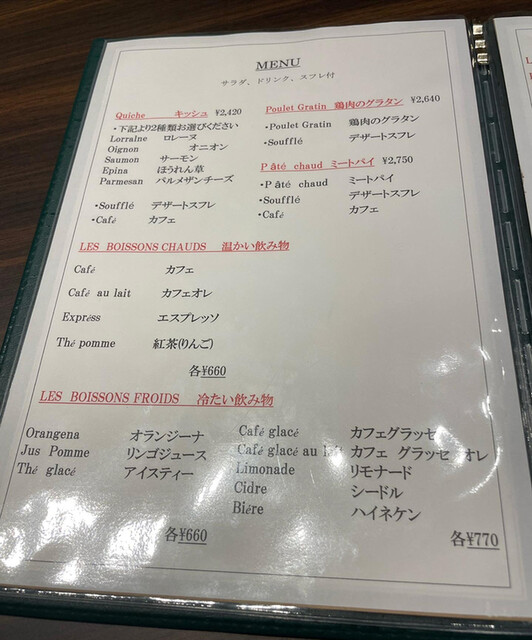 MENU
サラダ、ドリンク、スフレ付
Quiche キッシュ ¥2,420
・下記より2種類お選びください
Lorralne ロレーヌ
Oignon オニオン
Saumon サーモン
Epina ほうれん草
Parmesan パルメザンチーズ
・Soufflé デザートスフレ
・Café カフェ
Poulet Gratin 鶏肉のグラタン ¥2,640
・Poulet Gratin 鶏肉のグラタン
・Soufflé デザートスフレ
Pâté chaud ミートパイ ¥2,750
・Pâté chaud ミートパイ
・Soufflé デザートスフレ
・Café カフェ
LES BOISSONS CHAUDS 温かい飲み物
Café カフェ
Café au lait カフェオレ
Expréss エスプレッソ
Thé pomme 紅茶(りんご)
各¥660
LES BOISSONS FROIDS 冷たい飲み物
Orangena オランジーナ
Jus Pomme リンゴジュース
Thé glacé アイスティー
各¥660
Café glacé カフェグラッセ
Café glacé au lait カフェ グラッセ オレ
Limonade リモナード
Cidre シードル
Biére ハイネケン
各¥770